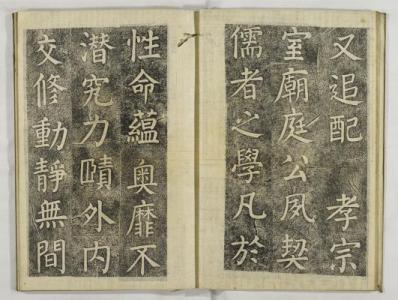 又追配 孝宗
室廟庭公夙契
儒者之學凡於
性命蘊奧靡不
潛究力賾外內
交修動靜無間